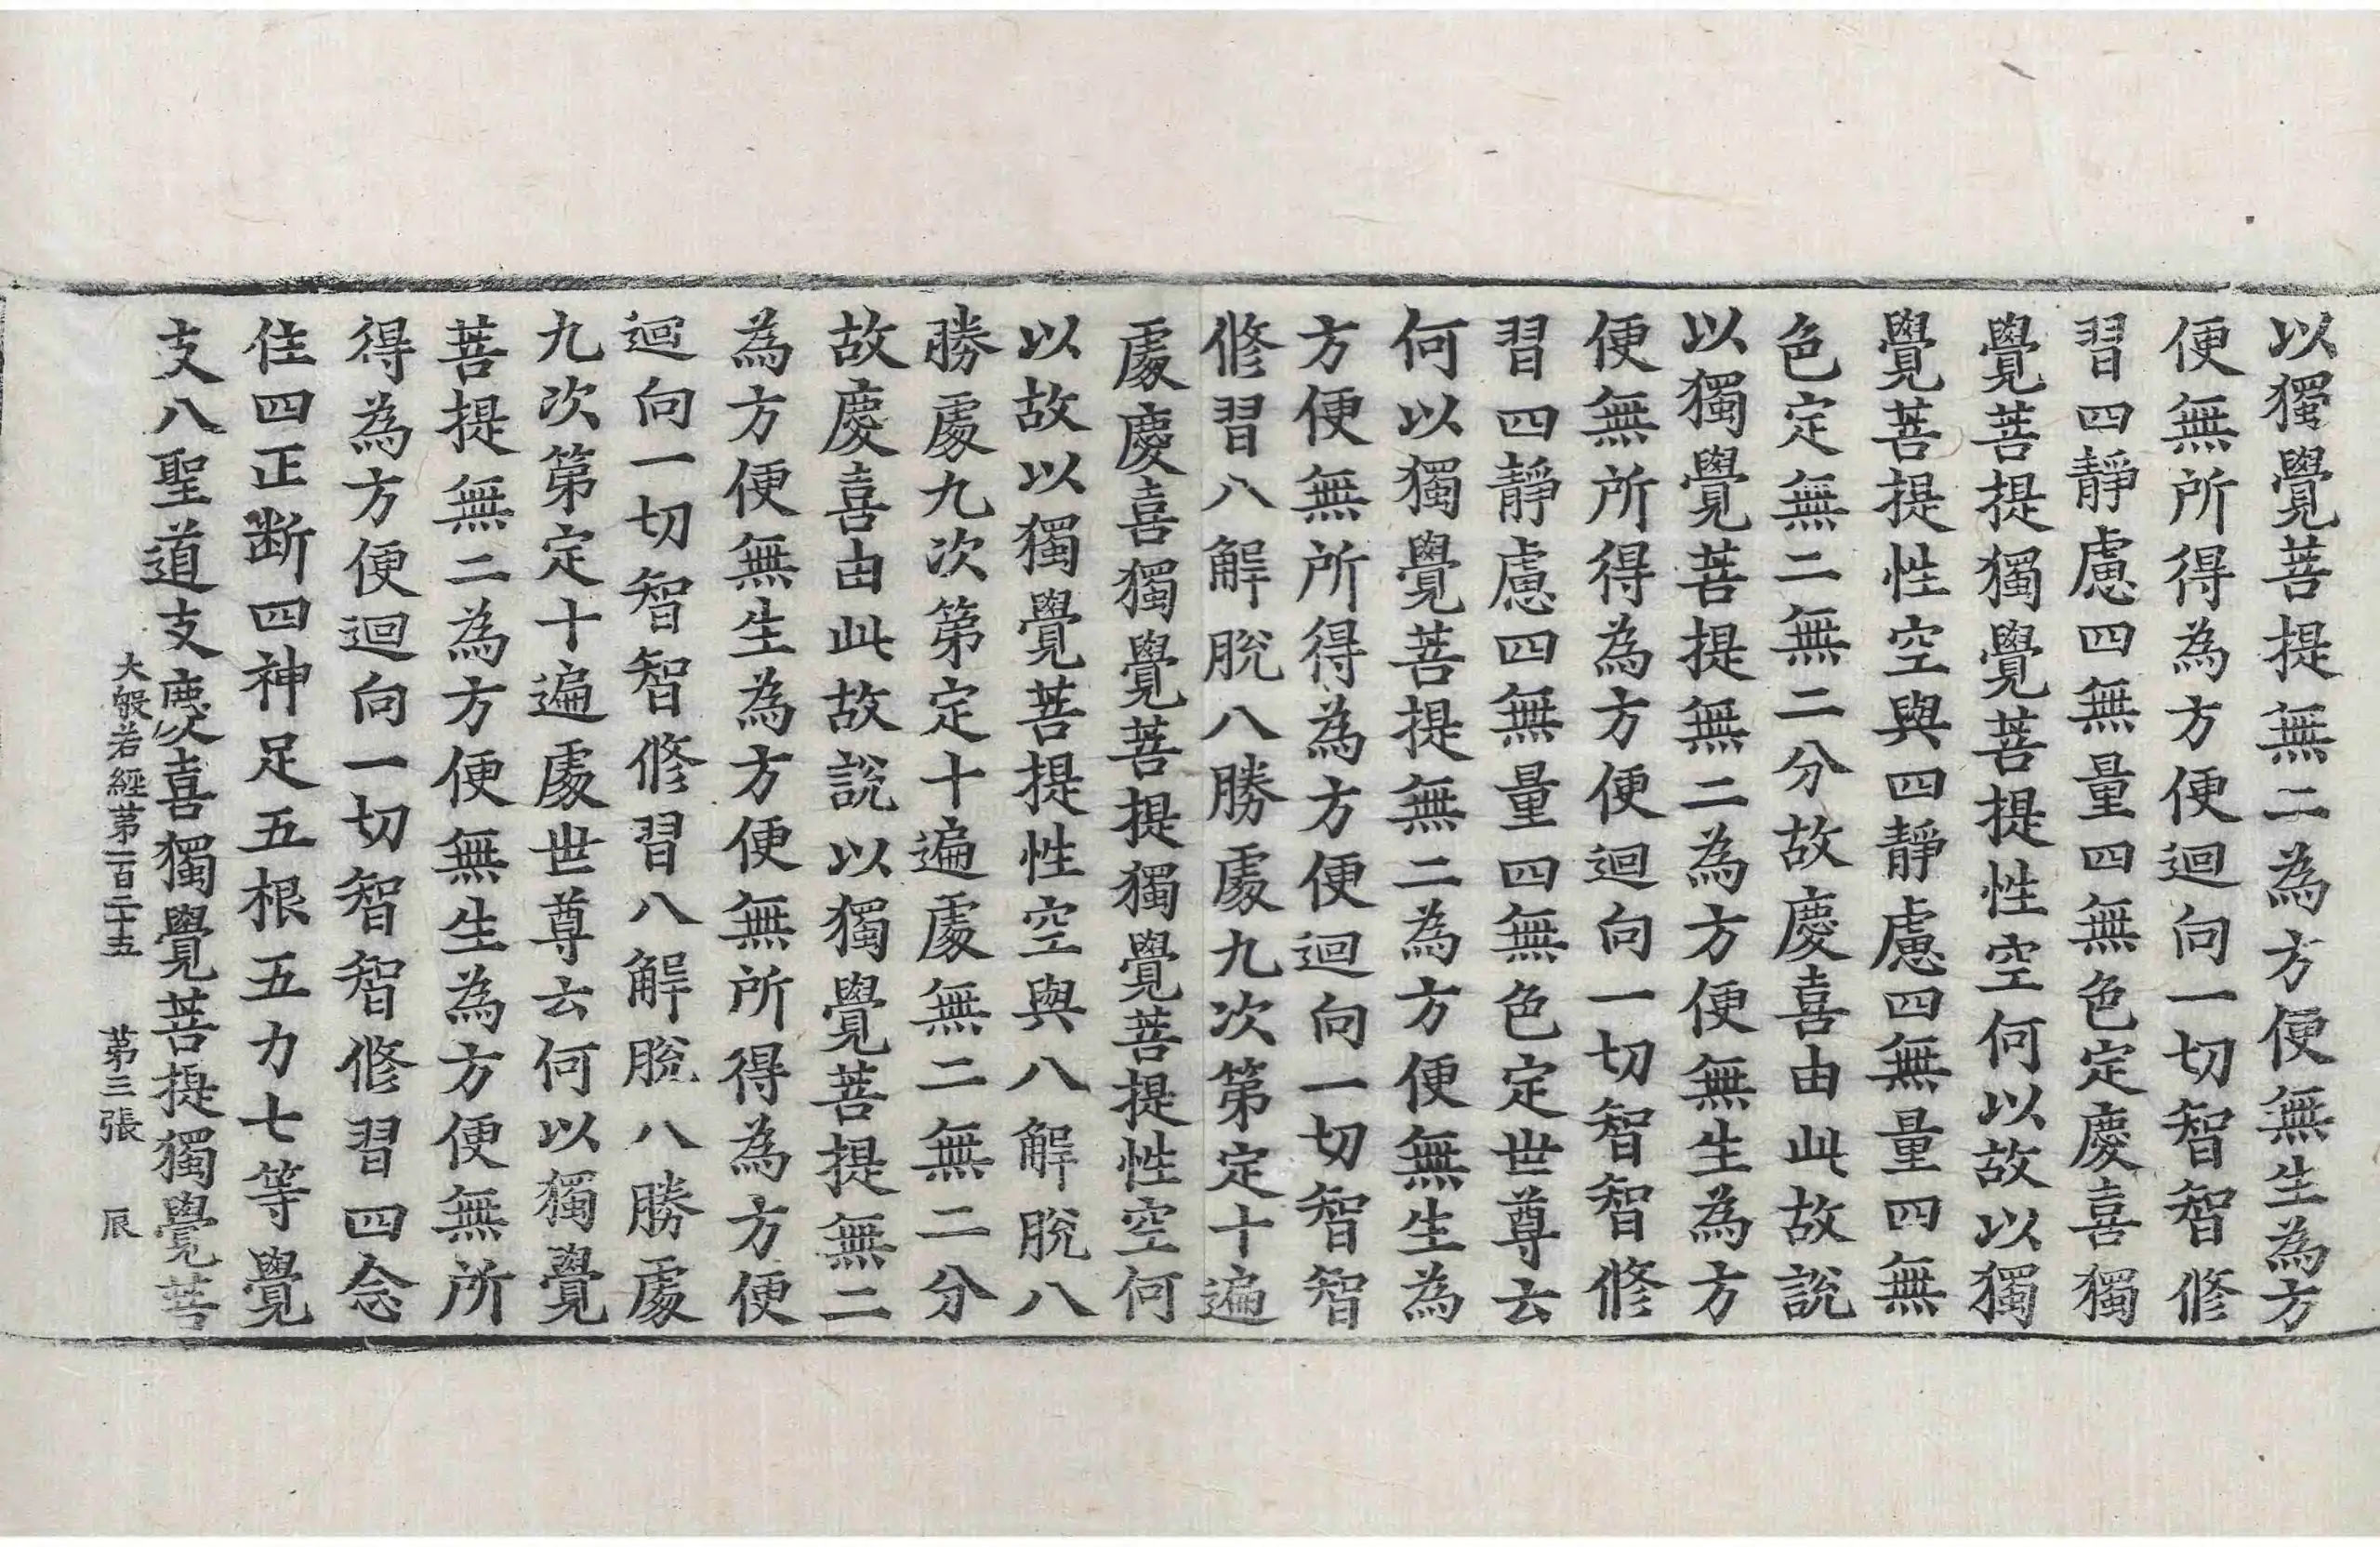 以獨覺菩提無二為方便無生為方
便無所得為方便迴向一切智智修
習四靜慮四無量四無色定慶喜獨
覺菩提獨覺菩提性空何以故以獨
覺菩提性空與四靜慮四無量四無
色定無二無二分故慶喜由此故說
以獨覺菩提無二為方便無生為方
便無所得為方便迴向一切智智修
習四靜慮四無量四無色定世尊云
何以獨覺菩提無二為方便無生為
方便無所得為方便迴向一切智智
修習八解脫八勝處九次第定十遍
處慶喜獨覺菩提獨覺菩提性空何
以故以獨覺菩提性空與八解脫八
勝處九次第定十遍處無二無二分
故慶喜由此故說以獨覺菩提無二
為方便無生為方便無所得為方便
迴向一切智智修習八解脫八勝處
九次第定十遍處世尊云何以獨覺
菩提無二為方便無生為方便無所
得為方便迴向一切智智修習四念
住四正断四神足五根五力七等覺
支八聖道支慶喜獨覺菩提獨覺菩
大般若經苐一百二十五 苐三張 辰